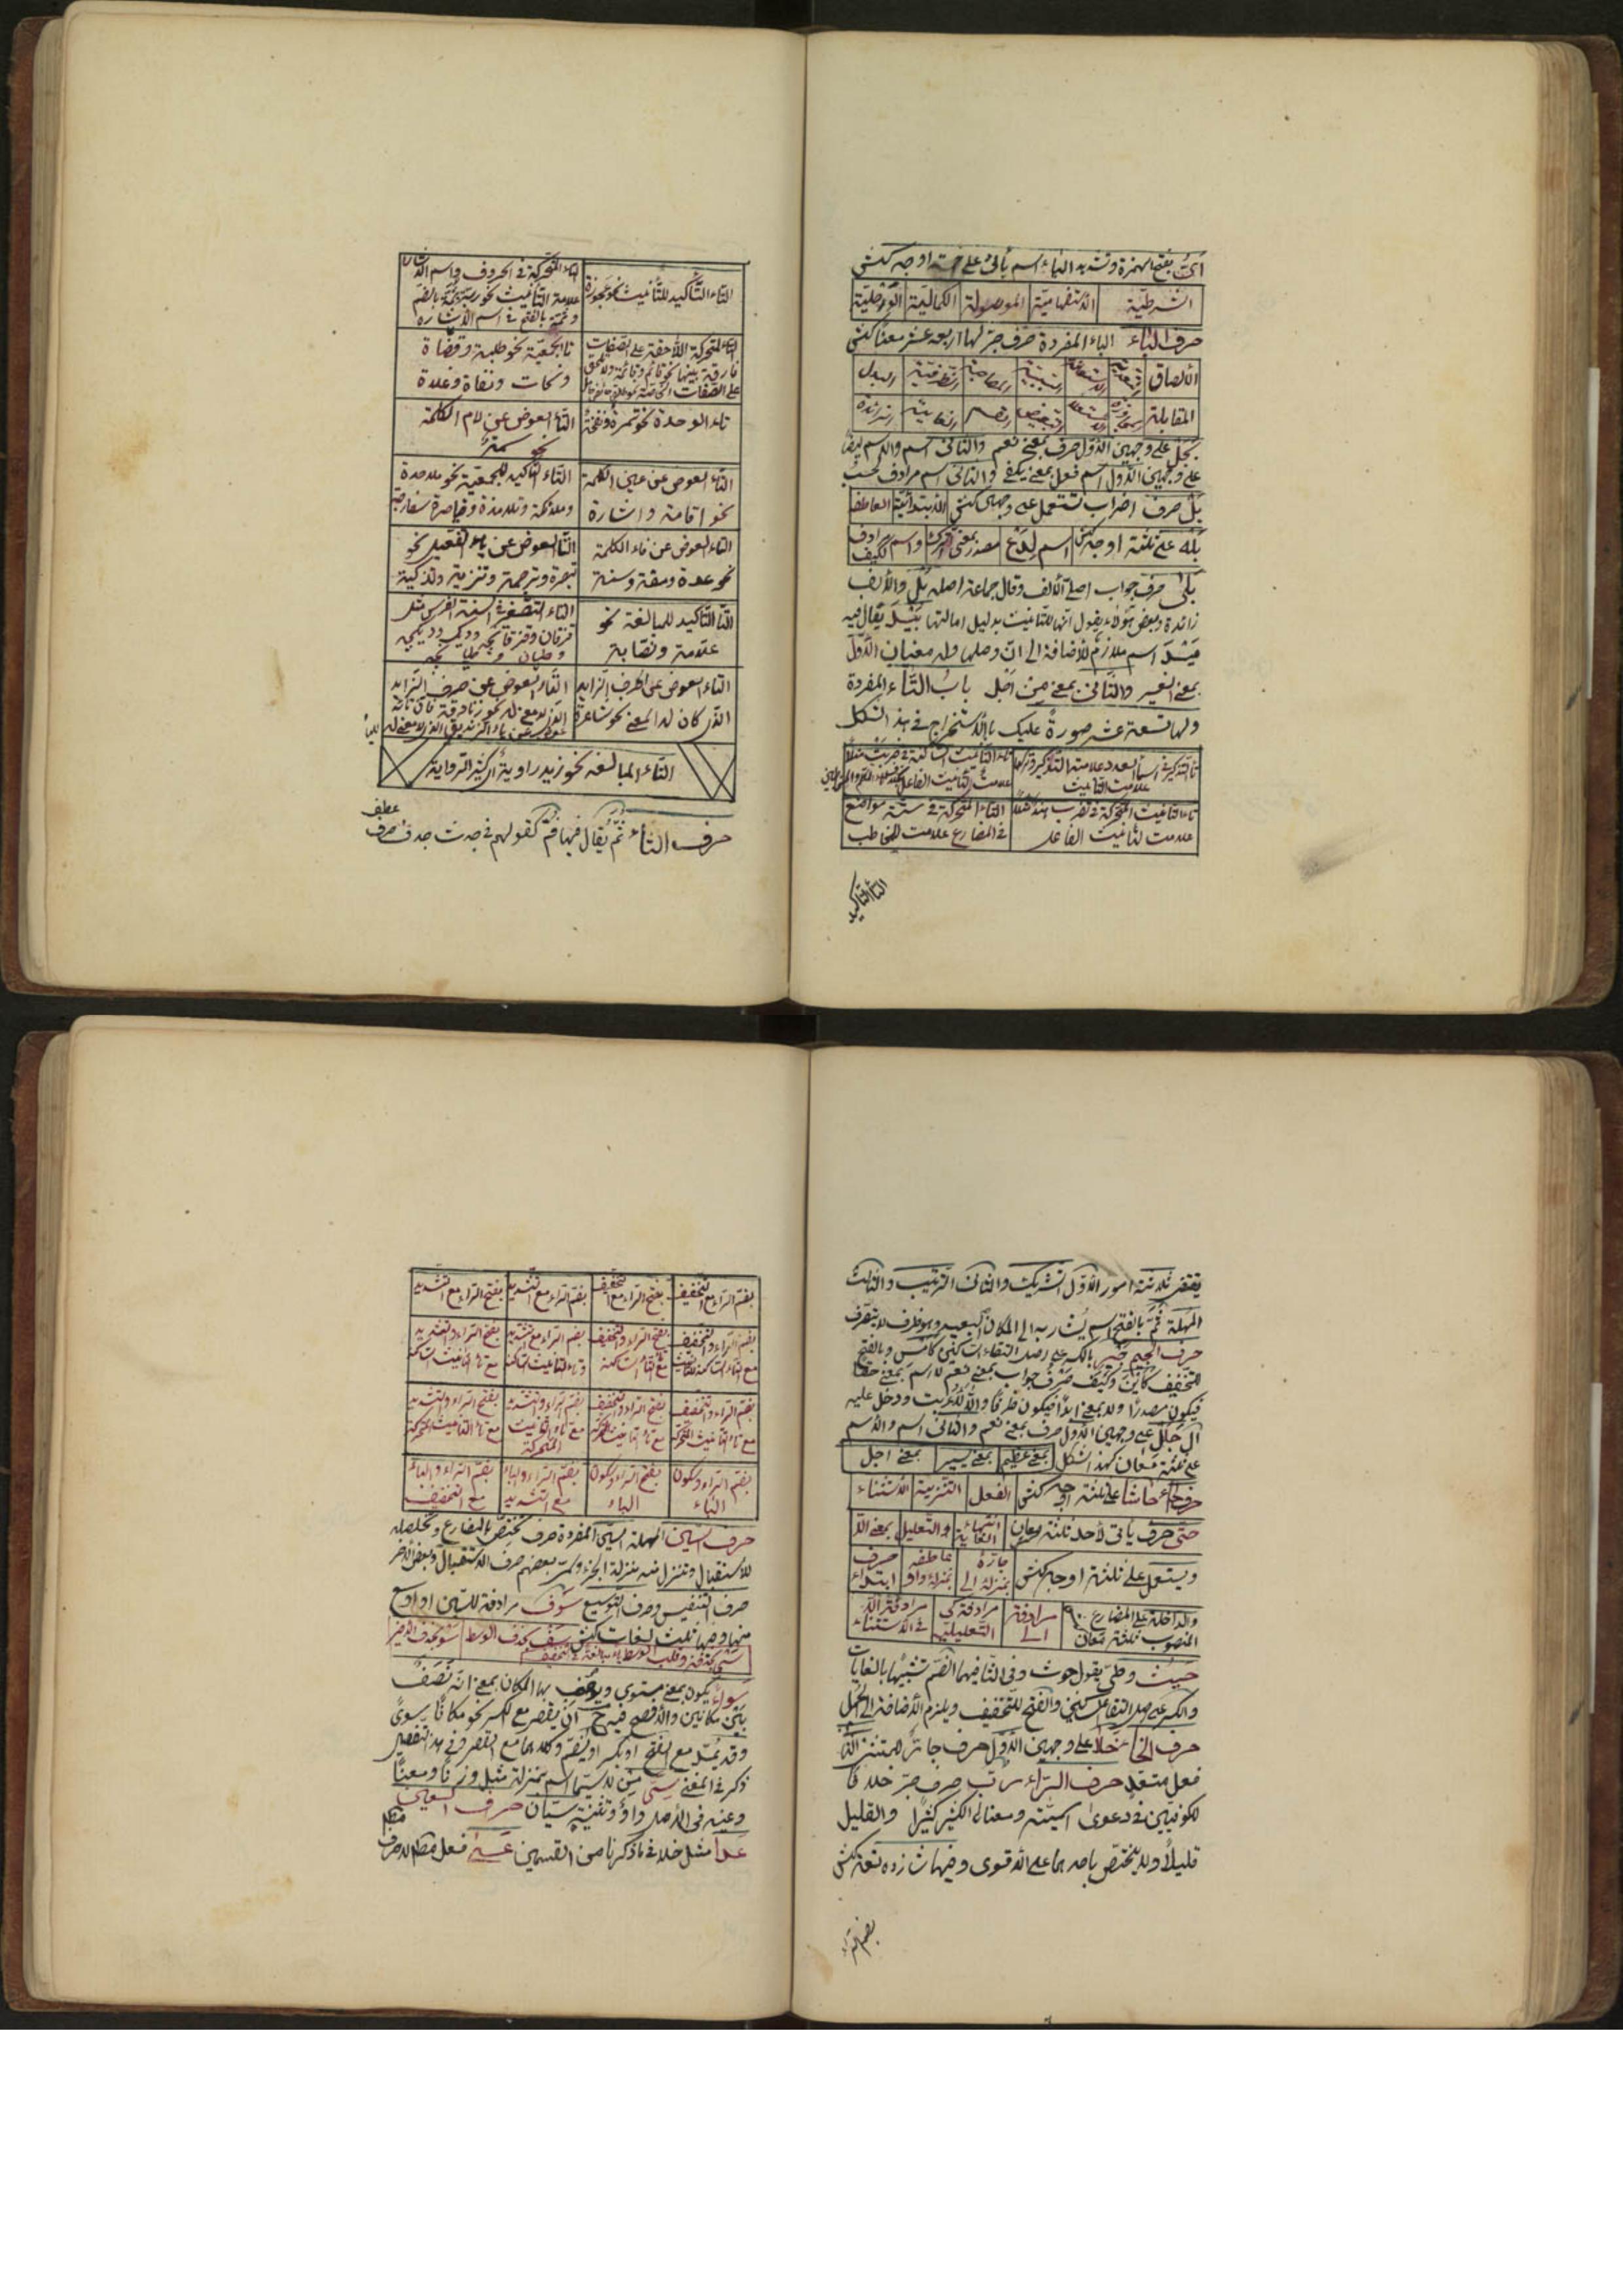 اىّ بفتح الهمزة وتشديد الياء اسم يأتى على خمسة اوجه كنش
الشرطيّة الاستفهاميّة الموصولة الكماليّة الوصليّة
حرف الباء الباء المفردة حرف جرّ لها اربعة عشر معنًا كنش
الالصاق التعدية الاستعانة السببيّة المصاحبة الظرفيّة البدل
المقابلة المجاوزة الاستعلاء التبعيض القسم الغاية الزائدة
بجل على وجهين الاوّل حرف بمعنى نعم والثانى اسم والاسم ايضًا
على وجهين الاوّل اسم فعل بمعنى يكفى والثانى اسم مرادف لحسب
بل حرف اضراب تستعمل على وجهين كنش الابتدائية العاطفة
بله على ثلثة اوجه كنش اسم لدع مصدر بمعنى الترك واسم مرادف لكيف
بلى حرف جواب اصلىّ الالف وقال جماعة اصله بل والالف
زائدة وبعض هؤلاء يقول انّها للتانيث بدليل امالتها بيد يقال فيه
ميد اسم ملازم للاضافة الى انّ وصلها وله معنيان الاوّل
بمعنى الغير والثانى بمعنى من اجل باب التّاء المفردة
ولها تسعة عشر صورة عليك باالاستخراج فى هذا الشكل
تاء التذكير فى اسماء العدد علامة التذكير وتركها علامت التانيث
تاء التانيث الساكنة فى ضربت مثلا علامت التانيث الفاعل
تاء التانيث المتحركة فى تضرب هند مثلا علامت لتانيث الفاعل
التاء المتحركة فى ستة مواضع فى المضارع علامت المخاطب
التاء التاكيد
التاء التّاكيد للتّانيث نحو عجوزة
التاء المتحركة فى الحروف واسم الاشارة علامة التانيث نحو ربّة وثمّة بالضم وثمّة بالفتح فى اسم الاشاره
التاء المتحركة اللاّحقة على الصفات فارقة بينها نحو قائم وقائمة
تا الجمعيّة نحو طلبة وقضاة ونحات ونفاة وغلاة
تاء الوحدة نحو تمرة ونفخة
التّاء العوض عن لام الكلمة نحو
التاء العوض عن عين الكلمة نحو اقامة واشارة
التاء التاكيد للجمعيّة نحو ملاحدة وملائكة وتلامذة وقياصرة
التاء العوض عن فاء الكلمة نحو عدة ومقة وسنة
التّا العوض عن ياء التفعيل نحو تبصرة وترجمة وتنزية وتذكية
التّا التّاكيد للمبالغة نحو علّامة ونسّابة
التاء العوض عن الحرف الزايد الذى كان له المعنى نحو
التّاء العوض عن حرف الزايد الذى لا معنى له نحو زنادقة
التّاء المبالغه نحو زيد راوية اى كثير الرواية
حرف الثاء ثمّ يُقال فيها فمّ كقولهم فى جدث جدف حرف
عطف
يقتضى ثلاثة امور الاوّل التشريك والثانى الترتيب والثالث
المهلة ثَمّ بالفتح اسم يُشار به الى المكان البعيد وهو ظرف لا يتصرف
حرف الجيم جير بالكسر على اصل التقاء الساكنين كامس وبالفتح
للتخفيف كاين وكيف حرف جواب بمعنى نعم لا اسم بمعنى حقّا
فيكون مصدرًا ولا بمعنى ابدًا فيكون ظرفًا والاّ لاعربت ودخل عليه
ال جلل على وجهين الاوّل حرف بمعنى نعم والثانى اسم والاسم
على ثلثة معان كهذا الشكل بمعنى عظيم بمعنى يسير بمعنى اجل
حرف الحاء حاشا على ثلثة اوجه كنش الفعل التنزيه الاستثناء
حتى حرف ياتى لاحد ثلثة معان انتهاء الغاية والتعليل بمعنى الاّ
ويستعمل على ثلثة اوجه كنش جارّة بمنزلة الى عاطفه بمنزلة واو حرف ابتداء
والداخلة على المضارع المنصوب ثلثة معان مرادفة الى مرادفة كى التعليليّة مرادفة الاّ فى الاستثناء
حيث وطىّ يقول حوث وفى الثّا فيهما الضمّ تشبيهًا بالغايات
والكسر على اصل التقاء الساكنين والفتح للتخفيف ويلزم الاضافة الى الجمل
حرف الخاء خلا على وجهين الاوّل حرف جارّ للمستثنى الثانى
فعل متعدّ حرف الراء ربّ حرف جرّ خلافًا
للكوفيّين فى دعوى اسميّته ومعناه الكثير كثيرًا والقليل
قليلاً ولا يختصّ باحدهما على الاقوى وفيها شانزده لغة كنش
بضم الراء
بضم الراء مع التخفيف بفتح الراء مع التخفيف بضم الراء مع التشديد بفتح الراء مع التشديد
بضم الراء والتخفيف مع التاء الساكنة للتانيث بفتح الراء والتخفيف مع التاء الساكنة بضم الراء مع تشديد وتاء التانيث الساكنة بفتح الراء والتشديد مع تاء التانيث الساكنة
بضم الراء والتخفيف مع تاء التانيث المتحركة بفتح الراء والتخفيف مع تاء التانيث المتحركة بضم الراء والتشديد مع تاء التانيث المتحركة بفتح الراء والتشديد مع تاء التانيث المتحركة
بضم الراء وسكون الباء بفتح الراء وسكون الباء بضم الراء والباء مع التشديد بضم الراء والباء مع التخفيف
حرف السّين المهملة السّين المفردة حرف يختصّ بالمضارع ويخلصه
للاستقبال وتنزل منه بمنزلة الجزء وسمّى بعضهم حرف الاستقبال وبعض الاخر
حرف التنفيس وحرف التوسيع سوف مرادفة للسّين او اوسع
منها وفيها ثلث لغات كنش سف بحذف الوسط سو بحذف الاخير
سى بحذفه وقلب الوسط ياء مبالغة فى التخفيف
سواء يكون بمعنى مستوى ويوصف بها المكان بمعنى انّه نصف
بين مكانين والافصح فيه ح ان يقصر مع الكسر نحو مكانًا سوىً
وقد يمدّ مع الفتح او يكسر او يضم وكلاهما مع القصر وفى هذا التفصيل
ذكر فى المغنى سىّ من لا سيّما اسم بمنزلة مثل وزنًا ومعنًا
وعينه فى الاصل واو وتثنيته سيّان حرف العين
عدا مثل خلا فى ما ذكرنا من القسمين عسى فعل مطلقا لا حرف
مطلقا